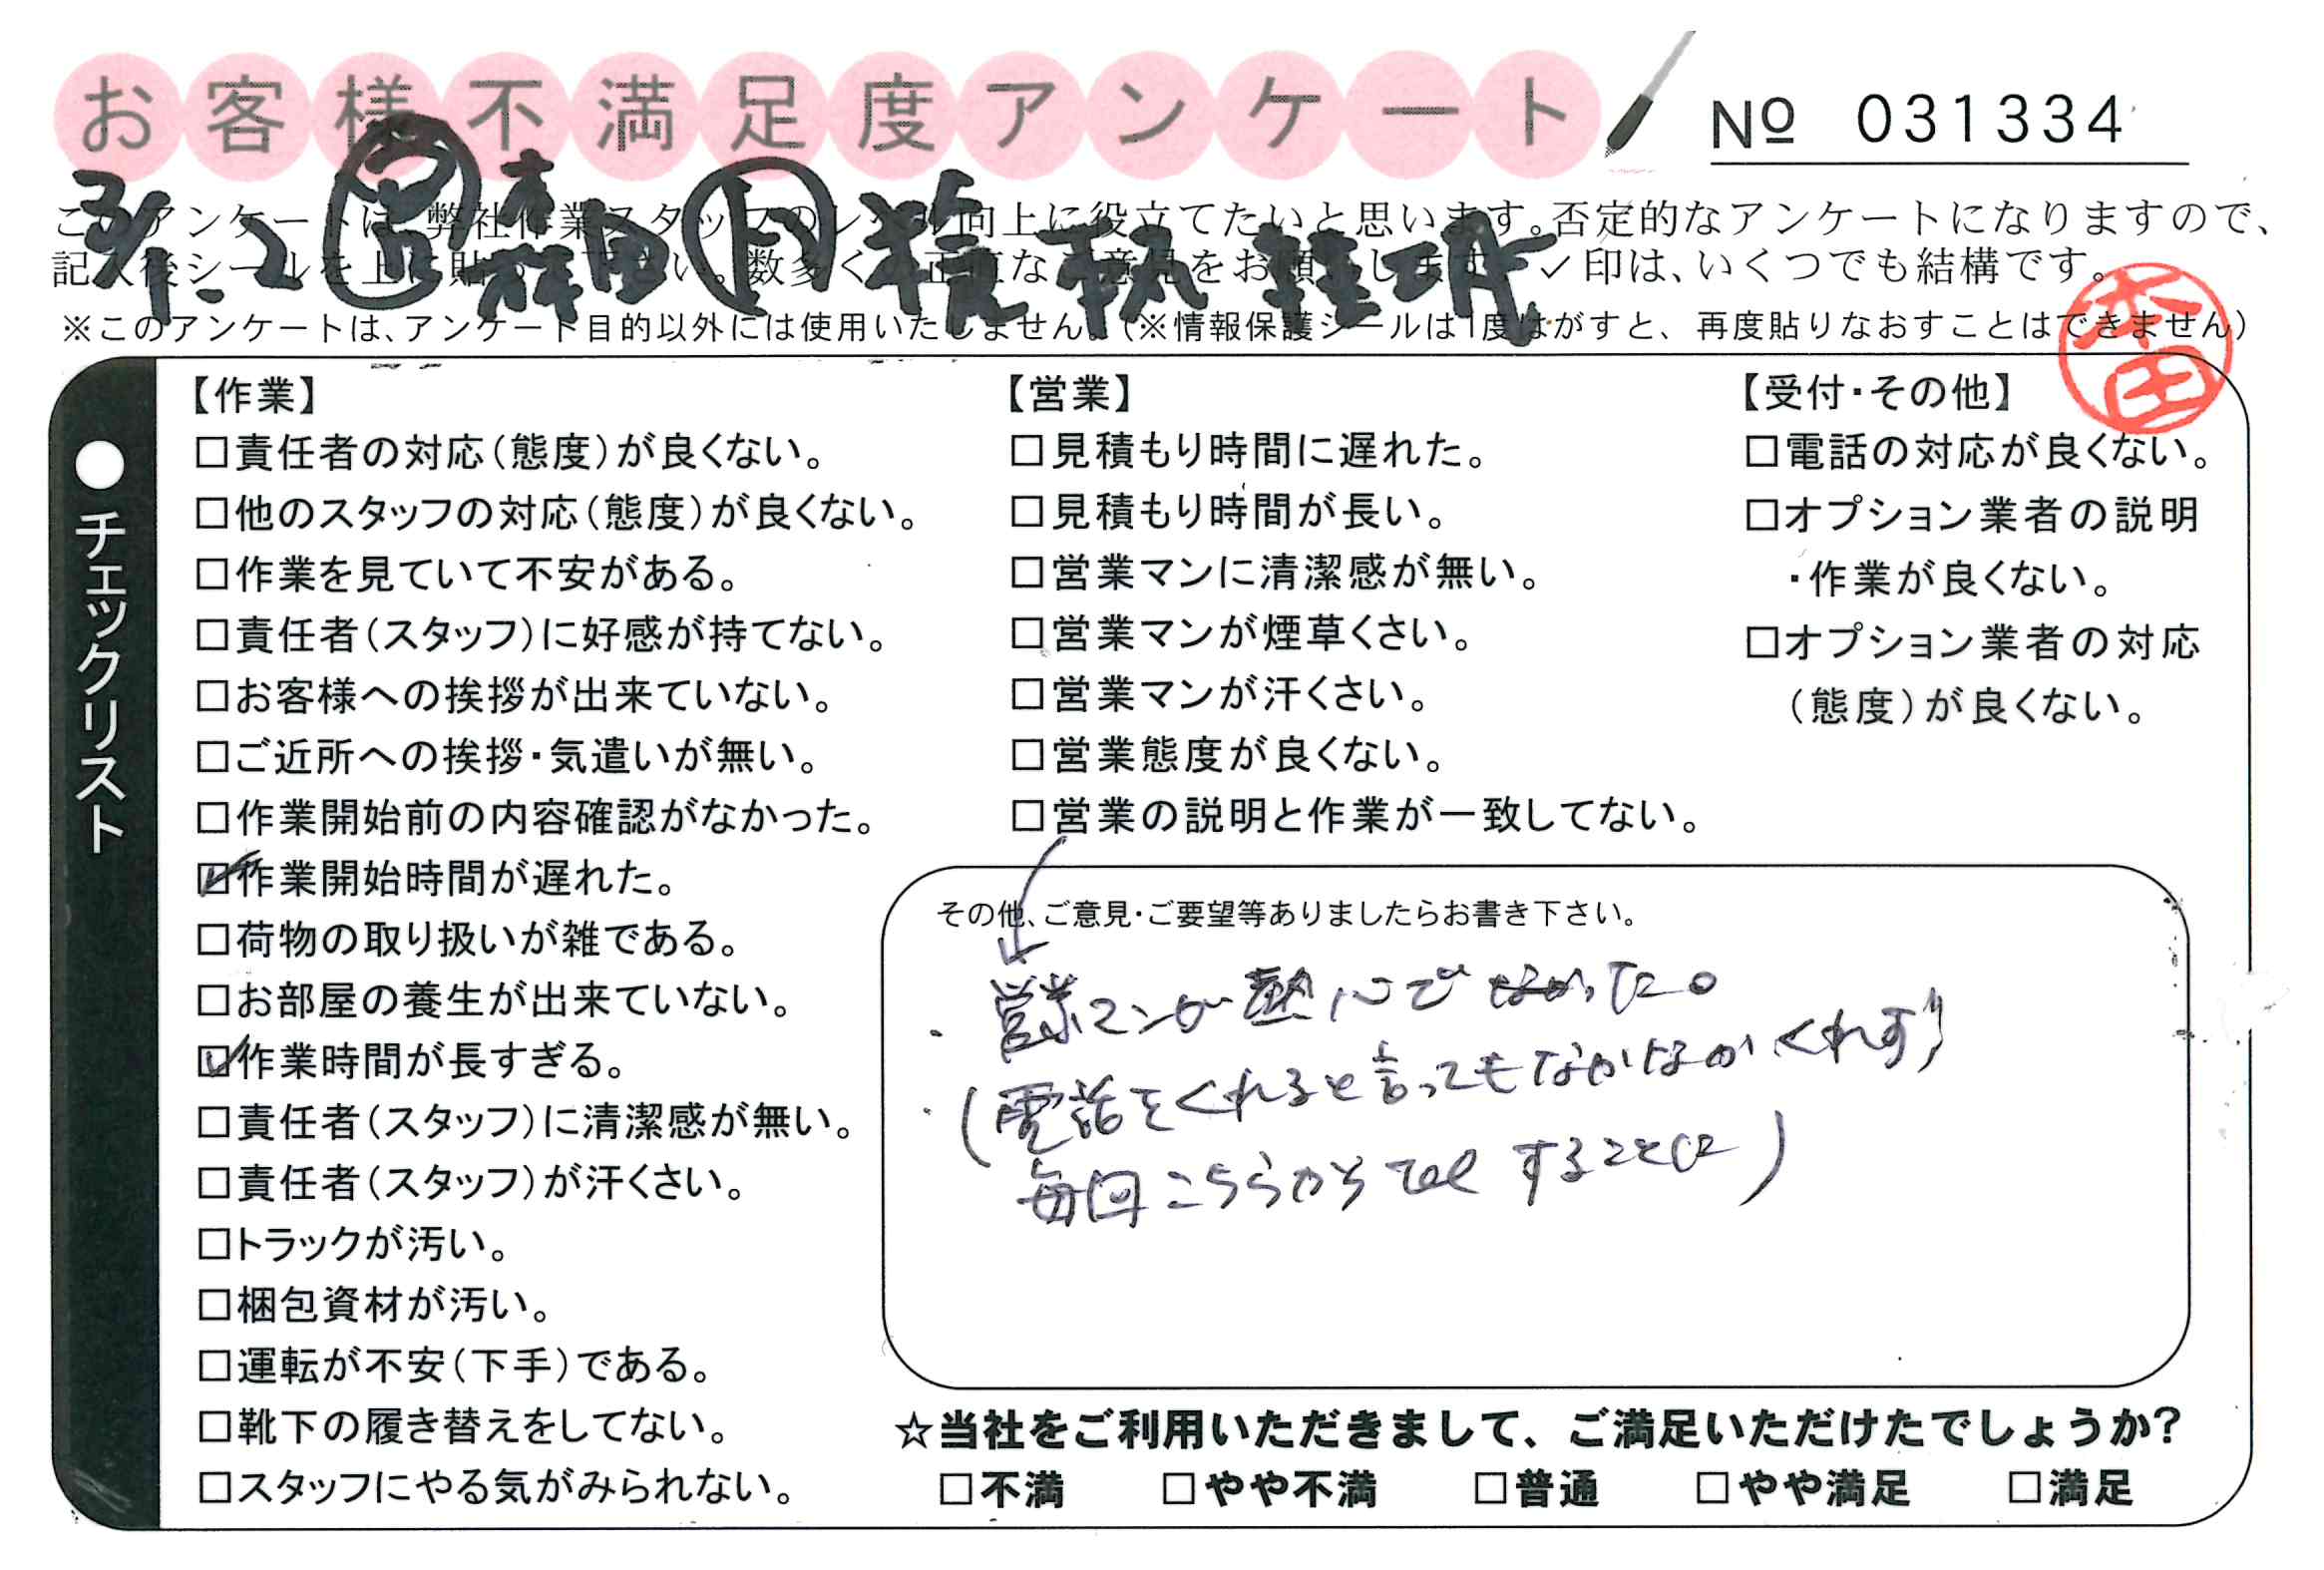 お客様不満足度アンケート
№ 031334
このアンケートは、弊社作業スタッフのレベル向上に役立てたいと思います。否定的なアンケートになりますので、
記入後シールを上に貼って下さい。数多くの正直なご意見をお願いします。✓印は、いくつでも結構です。
※このアンケートは、アンケート目的以外には使用いたしません。(※情報保護シールは1度はがすと、再度貼りなおすことはできません)
3/1.2
本田
●チェックリスト
【作業】
□責任者の対応(態度)が良くない。
□他のスタッフの対応(態度)が良くない。
□作業を見ていて不安がある。
□責任者(スタッフ)に好感が持てない。
□お客様への挨拶が出来ていない。
□ご近所への挨拶・気遣いが無い。
□作業開始前の内容確認がなかった。
☑作業開始時間が遅れた。
□荷物の取り扱いが雑である。
□お部屋の養生が出来ていない。
☑作業時間が長すぎる。
□責任者(スタッフ)に清潔感が無い。
□責任者(スタッフ)が汗くさい。
□トラックが汚い。
□梱包資材が汚い。
□運転が不安(下手)である。
□靴下の履き替えをしてない。
□スタッフにやる気がみられない。
【営業】
□見積もり時間に遅れた。
□見積もり時間が長い。
□営業マンに清潔感が無い。
□営業マンが煙草くさい。
□営業マンが汗くさい。
□営業態度が良くない。
□営業の説明と作業が一致してない。
【受付・その他】
□電話の対応が良くない。
□オプション業者の説明
・作業が良くない。
□オプション業者の対応
(態度)が良くない。
その他、ご意見・ご要望等ありましたらお書き下さい。
・営業マンが熱心でなかった。
・(電話をくれると言ってもなかなかくれず
毎回こちらからtelすることに)
☆当社をご利用いただきまして、ご満足いただけたでしょうか?
□不満 □やや不満 □普通 □やや満足 □満足